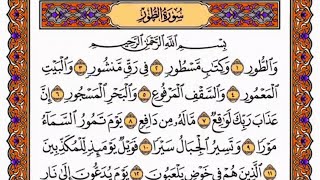 سُورَةُ الطُّورِ
بِسْمِ اللَّهِ الرَّحْمَٰنِ الرَّحِيمِ
وَالطُّورِ ١ وَكِتَابٍ مَّسْطُورٍ ٢ فِي رَقٍّ مَّنشُورٍ ٣ وَالْبَيْتِ
الْمَعْمُورِ ٤ وَالسَّقْفِ الْمَرْفُوعِ ٥ وَالْبَحْرِ الْمَسْجُورِ ٦
إِنَّ عَذَابَ رَبِّكَ لَوَاقِعٌ ٧ مَّا لَهُ مِن دَافِعٍ ٨ يَوْمَ تَمُورُ السَّمَاءُ
مَوْرًا ٩ وَتَسِيرُ الْجِبَالُ سَيْرًا ١٠ فَوَيْلٌ يَوْمَئِذٍ لِّلْمُكَذِّبِينَ
١١ الَّذِينَ هُمْ فِي خَوْضٍ يَلْعَبُونَ ١٢ يَوْمَ يُدَعُّونَ إِلَىٰ نَارِ